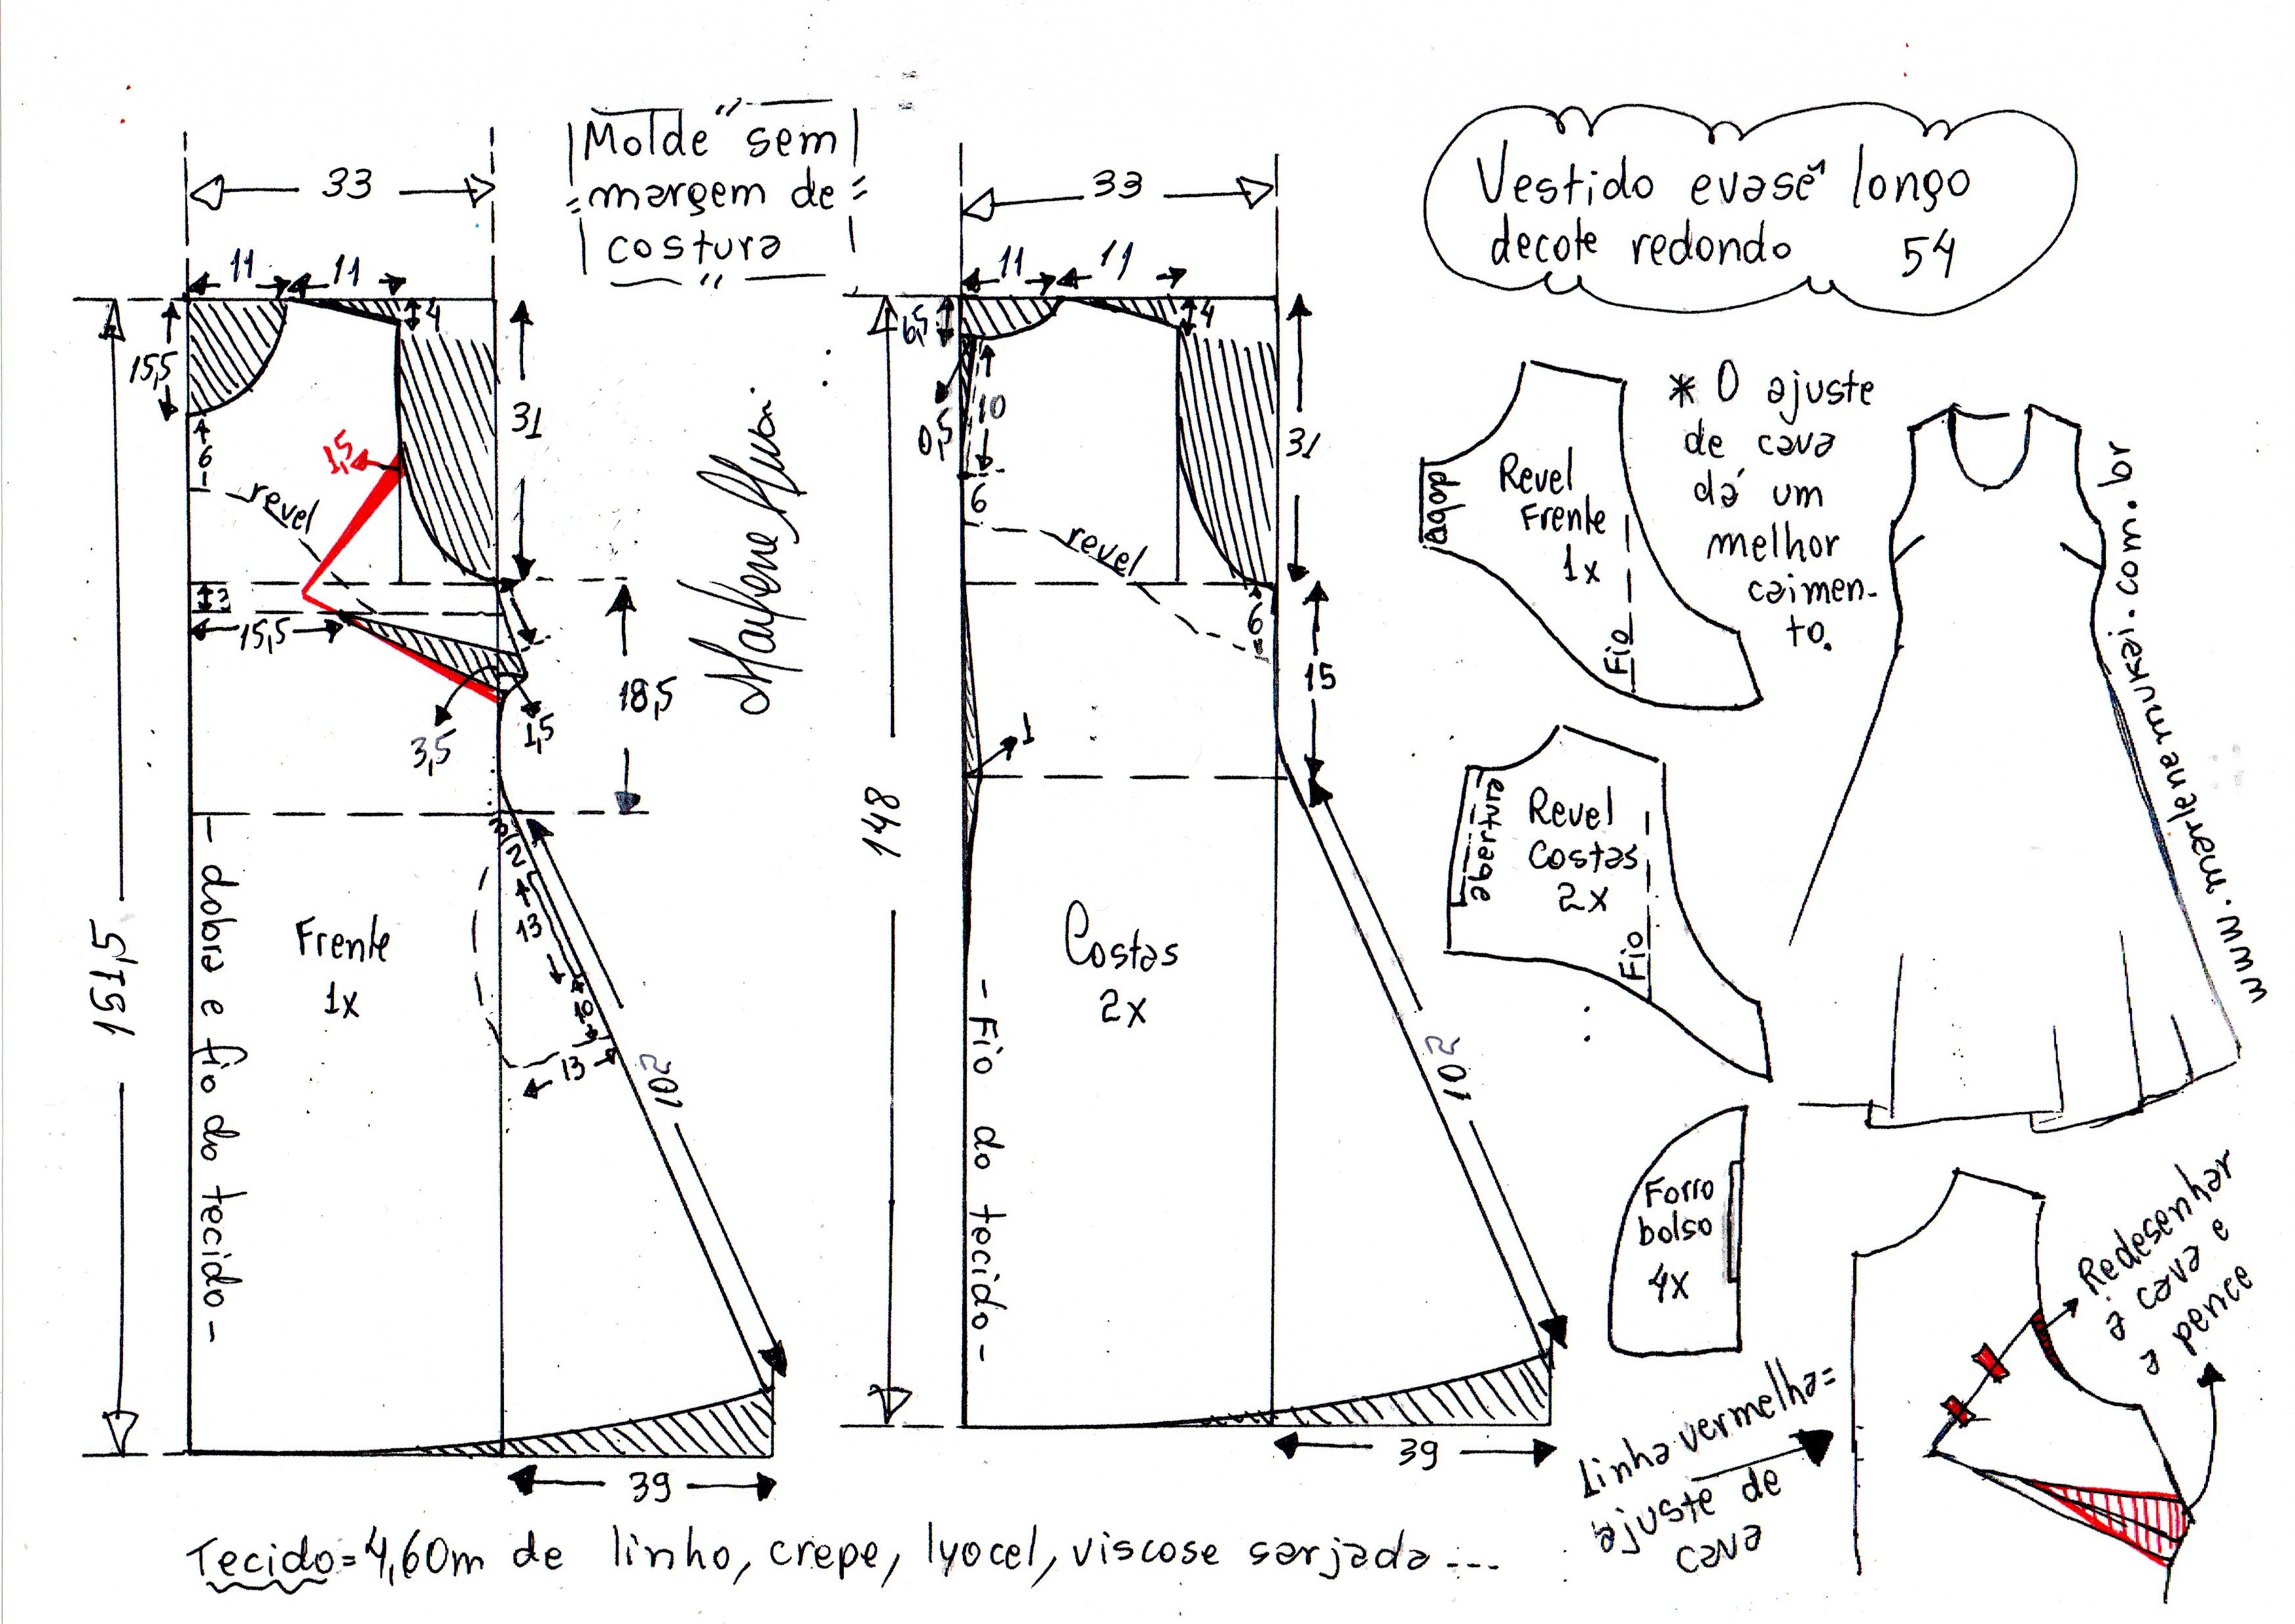 "Molde sem
margem de
costura"
Vestido evasê longo
decote redondo 54
33
11 11
4
15,5
6
revel
1,5
31
3
15,5
3,5
1,5
18,5
151,5
3
2
13
10
13
102
39
- dobra e fio do tecido -
Frente
1x
Marlene Mukai
33
11 11
6,5
4
0,5
10
6
revel
31
6
15
1
148
102
39
Costas
2x
- Fio do tecido -
Revel
Frente
1x
dobra
Fio
* O ajuste
de cava
dá um
melhor
caimen-
to.
Revel
Costas
2x
abertura
Fio
www.marlenemukai.com.br
Forro
bolso
4x
Redesenhar
a cava e
a pence
linha vermelha=
ajuste de
cava
Tecido=4,60m de linho, crepe, lyocel, viscose sarjada...